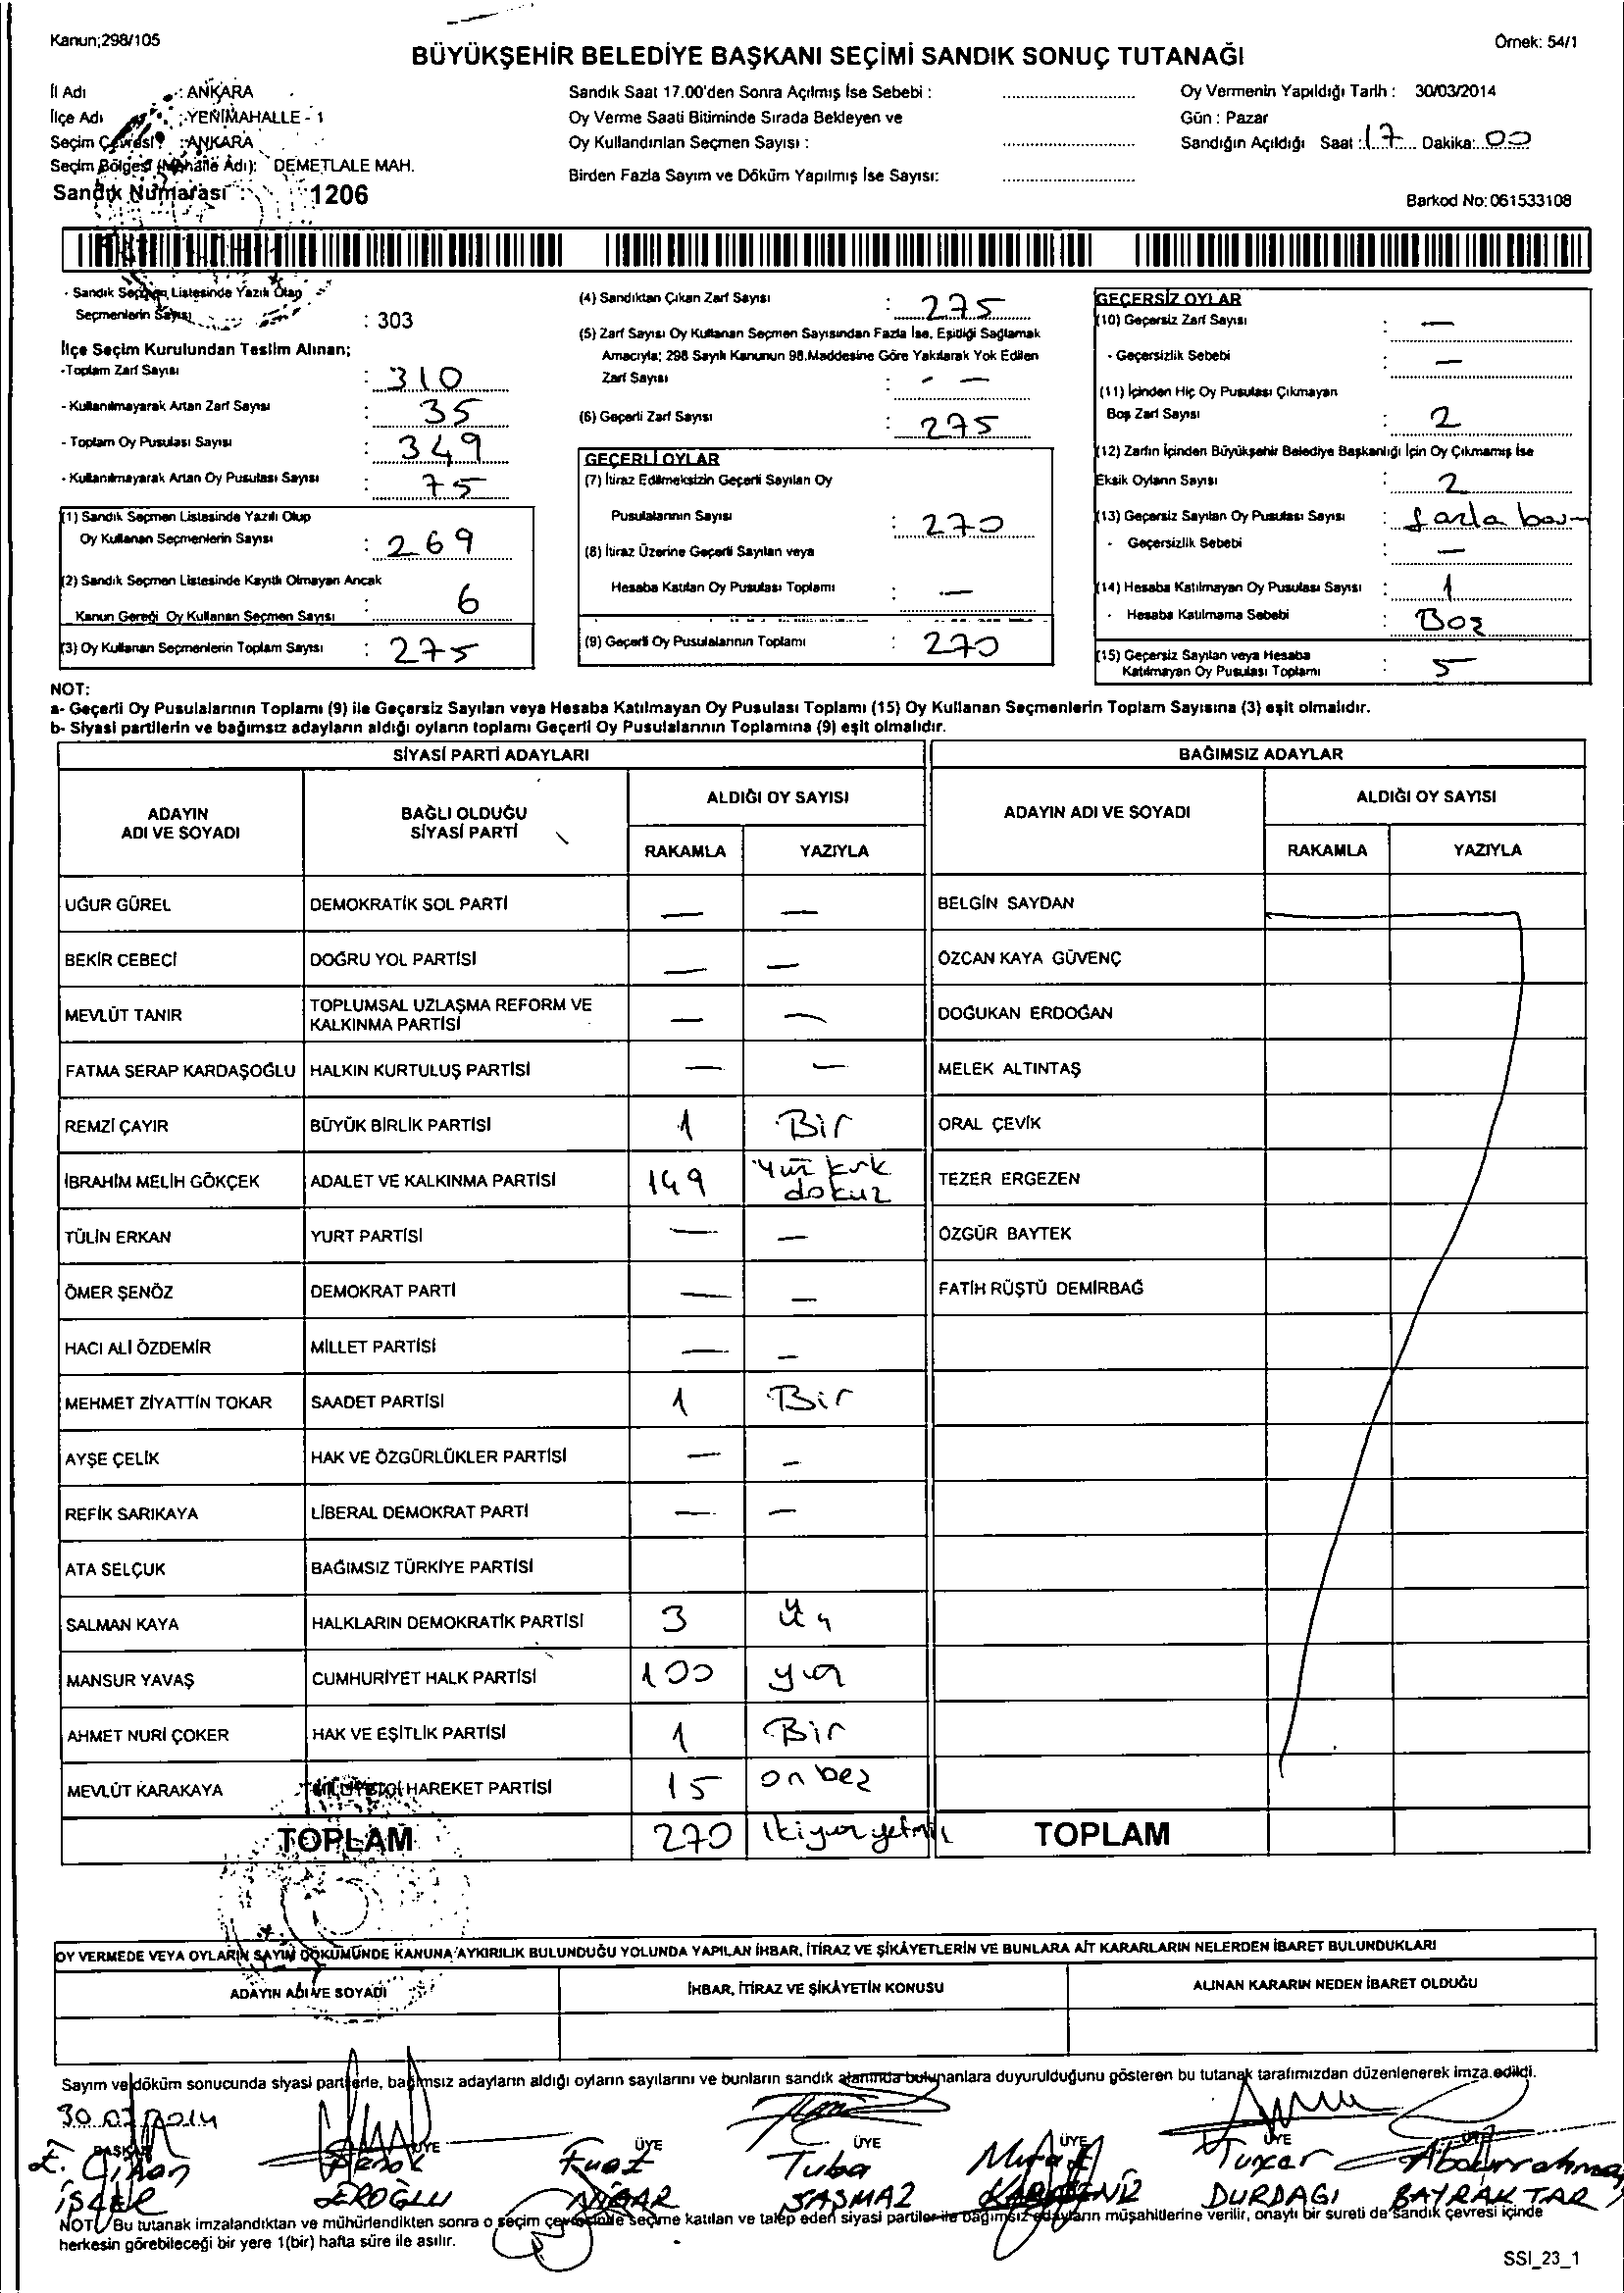 Kanun;298/105
Örnek: 54/1
BÜYÜKŞEHİR BELEDİYE BAŞKANI SEÇİMİ SANDIK SONUÇ TUTANAĞI
İl Adı : ANKARA
İlçe Adı : YENİMAHALLE - 1
Seçim Çevresi : ANKARA
Seçim Bölgesi (Mahalle Adı): DEMETLALE MAH.
Sandık Numarası : 1206
Sandık Saat 17.00'den Sonra Açılmış İse Sebebi :
Oy Verme Saati Bitiminde Sırada Bekleyen ve
Oy Kullandırılan Seçmen Sayısı :
Birden Fazla Sayım ve Döküm Yapılmış İse Sayısı:
Oy Vermenin Yapıldığı Tarih : 30/03/2014
Gün : Pazar
Sandığın Açıldığı Saat : 17 Dakika: 00
Barkod No: 061533108
- Sandık Seçmen Listesinde Yazılı Olan
Seçmenlerin Sayısı : 303
İlçe Seçim Kurulundan Teslim Alınan;
-Toplam Zarf Sayısı : 310
- Kullanılmayarak Artan Zarf Sayısı : 35
- Toplam Oy Pusulası Sayısı : 349
- Kullanılmayarak Artan Oy Pusulası Sayısı : 75
(1) Sandık Seçmen Listesinde Yazılı Olup
Oy Kullanan Seçmenlerin Sayısı : 269
(2) Sandık Seçmen Listesinde Kayıtlı Olmayan Ancak
Kanun Gereği Oy Kullanan Seçmen Sayısı : 6
(3) Oy Kullanan Seçmenlerin Toplam Sayısı : 275
(4) Sandıktan Çıkan Zarf Sayısı : 275
(5) Zarf Sayısı Oy Kullanan Seçmen Sayısından Fazla İse, Eşitliği Sağlamak
Amacıyla; 298 Sayılı Kanunun 98.Maddesine Göre Yakılarak Yok Edilen
Zarf Sayısı : - —
(6) Geçerli Zarf Sayısı : 275
GEÇERLİ OYLAR
(7) İtiraz Edilmeksizin Geçerli Sayılan Oy
Pusulalarının Sayısı : 270
(8) İtiraz Üzerine Geçerli Sayılan veya
Hesaba Katılan Oy Pusulası Toplamı : —
(9) Geçerli Oy Pusulalarının Toplamı : 270
GEÇERSİZ OYLAR
(10) Geçersiz Zarf Sayısı : —
- Geçersizlik Sebebi : —
(11) İçinden Hiç Oy Pusulası Çıkmayan
Boş Zarf Sayısı : 2
(12) Zarfın İçinden Büyükşehir Belediye Başkanlığı İçin Oy Çıkmamış İse
Eksik Oyların Sayısı : 2
(13) Geçersiz Sayılan Oy Pusulası Sayısı : fazla
- Geçersizlik Sebebi : —
(14) Hesaba Katılmayan Oy Pusulası Sayısı : 1
- Hesaba Katılmama Sebebi : Boş
(15) Geçersiz Sayılan veya Hesaba
Katılmayan Oy Pusulası Toplamı : 5
NOT:
a- Geçerli Oy Pusulalarının Toplamı (9) ile Geçersiz Sayılan veya Hesaba Katılmayan Oy Pusulası Toplamı (15) Oy Kullanan Seçmenlerin Toplam Sayısına (3) eşit olmalıdır.
b- Siyasi partilerin ve bağımsız adayların aldığı oyların toplamı Geçerli Oy Pusulalarının Toplamına (9) eşit olmalıdır.
SİYASİ PARTİ ADAYLARI BAĞIMSIZ ADAYLAR
ADAYIN ADI VE SOYADI BAĞLI OLDUĞU SİYASİ PARTİ ALDIĞI OY SAYISI ADAYIN ADI VE SOYADI ALDIĞI OY SAYISI
RAKAMLA YAZIYLA RAKAMLA YAZIYLA
UĞUR GÜREL DEMOKRATİK SOL PARTİ — — BELGİN SAYDAN
BEKİR CEBECİ DOĞRU YOL PARTİSİ — — ÖZCAN KAYA GÜVENÇ
MEVLÜT TANIR TOPLUMSAL UZLAŞMA REFORM VE KALKINMA PARTİSİ — — DOĞUKAN ERDOĞAN
FATMA SERAP KARDAŞOĞLU HALKIN KURTULUŞ PARTİSİ — — MELEK ALTINTAŞ
REMZİ ÇAYIR BÜYÜK BİRLİK PARTİSİ 1 Bir ORAL ÇEVİK
İBRAHİM MELİH GÖKÇEK ADALET VE KALKINMA PARTİSİ 149 Yüz kırk dokuz TEZER ERGEZEN
TÜLİN ERKAN YURT PARTİSİ — — ÖZGÜR BAYTEK
ÖMER ŞENÖZ DEMOKRAT PARTİ — — FATİH RÜŞTÜ DEMİRBAĞ
HACI ALİ ÖZDEMİR MİLLET PARTİSİ — —
MEHMET ZİYATTİN TOKAR SAADET PARTİSİ 1 Bir
AYŞE ÇELİK HAK VE ÖZGÜRLÜKLER PARTİSİ — —
REFİK SARIKAYA LİBERAL DEMOKRAT PARTİ — —
ATA SELÇUK BAĞIMSIZ TÜRKİYE PARTİSİ
SALMAN KAYA HALKLARIN DEMOKRATİK PARTİSİ 3 Üç
MANSUR YAVAŞ CUMHURİYET HALK PARTİSİ 100 yüz
AHMET NURİ ÇOKER HAK VE EŞİTLİK PARTİSİ 1 Bir
MEVLÜT KARAKAYA MİLLİYETÇİ HAREKET PARTİSİ 15 on beş
TOPLAM 270 İkiyüzyetmiş TOPLAM
OY VERMEDE VEYA OYLARIN SAYIM DÖKÜMÜNDE KANUNA AYKIRILIK BULUNDUĞU YOLUNDA YAPILAN İHBAR, İTİRAZ VE ŞİKÂYETLERİN VE BUNLARA AİT KARARLARIN NELERDEN İBARET BULUNDUKLARI
ADAYIN ADI VE SOYADI İHBAR, İTİRAZ VE ŞİKÂYETİN KONUSU ALINAN KARARIN NEDEN İBARET OLDUĞU
Sayım ve döküm sonucunda siyasi partilerle, bağımsız adayların aldığı oyların sayılarını ve bunların sandık alanında bulunanlara duyurulduğunu gösteren bu tutanak tarafımızdan düzenlenerek imza edildi.
30.03.2014
BAŞKAN ÜYE ÜYE ÜYE ÜYE ÜYE ÜYE
Fuat Tuba Murat Tuncar Abdurrahman
EROĞLU SAŞMAZ KARADENİZ DURDAGI BAYRAKTAR
NOT: Bu tutanak imzalandıktan ve mühürlendikten sonra o seçim çevresinde seçime katılan ve talep eden siyasi partiler ile bağımsız adayların müşahitlerine verilir, onaylı bir sureti de sandık çevresi içinde
herkesin görebileceği bir yere 1(bir) hafta süre ile asılır.
SSI_23_1